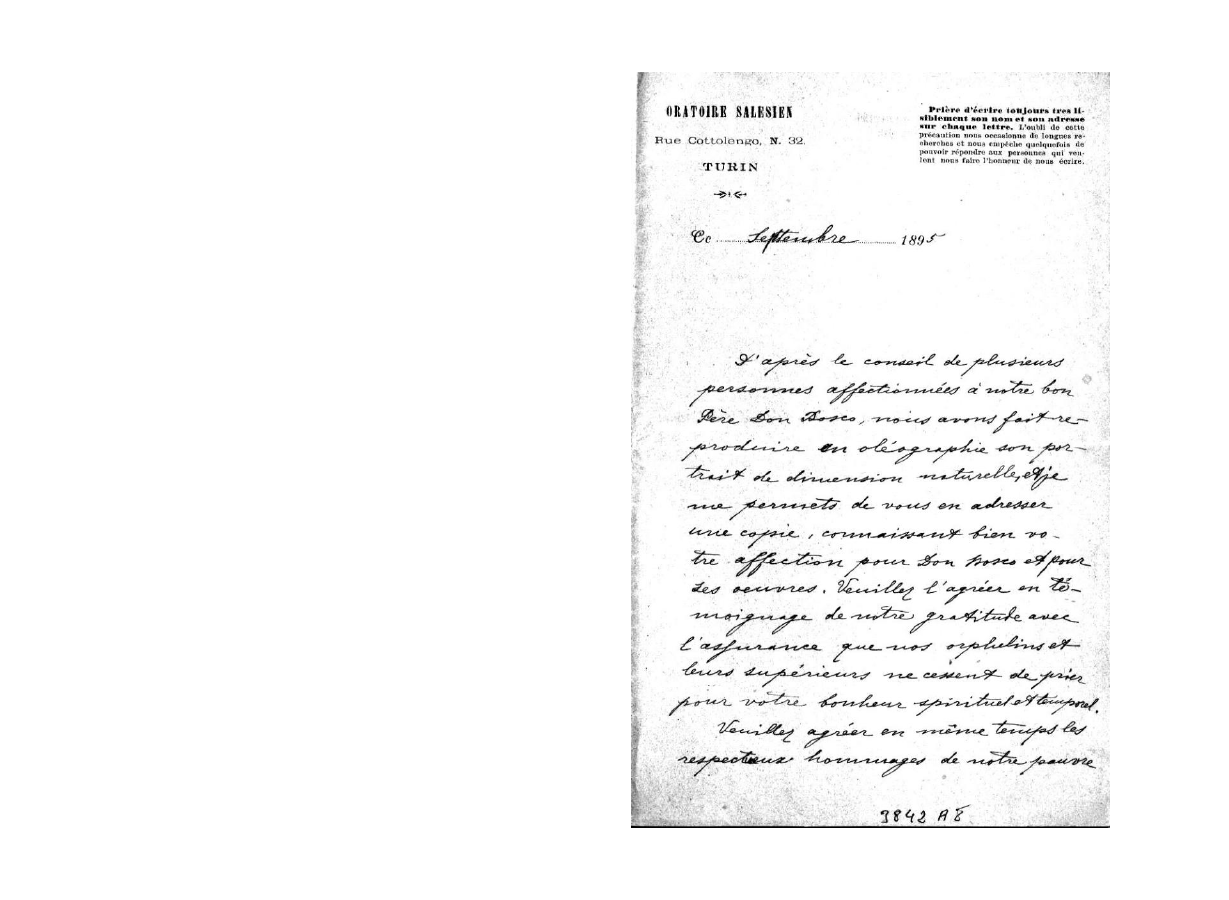 ORATOIRE SALESIEN
Rue Cottolengo, N. 32.
TURIN
Prière d'écrire toujours tres li-
siblement son nom et son adresse
sur chaque lettre. L'oubli de cette
précaution nous occasionne de longues re-
cherches et nous empêche quelquefois de
pouvoir répondre aux personnes qui veu-
lent nous faire l'honneur de nous écrire.
Ce Septembre 1895
D'après le conseil de plusieurs
personnes affectionnées à notre bon
Père Don Bosco, nous avons fait re-
produire en oléographie son por-
trait de dimension naturelle, et je
me permets de vous en adresser
une copie, connaissant bien vo-
tre affection pour Don Bosco et pour
ses oeuvres. Veuillez l'agréer en té-
moignage de notre gratitude avec
l'assurance que nos orphelins et
leurs supérieurs ne cessent de prier
pour votre bonheur spirituel et temporel.
Veuillez agréer en même temps les
respectueux hommages de notre pauvre
3842 A8